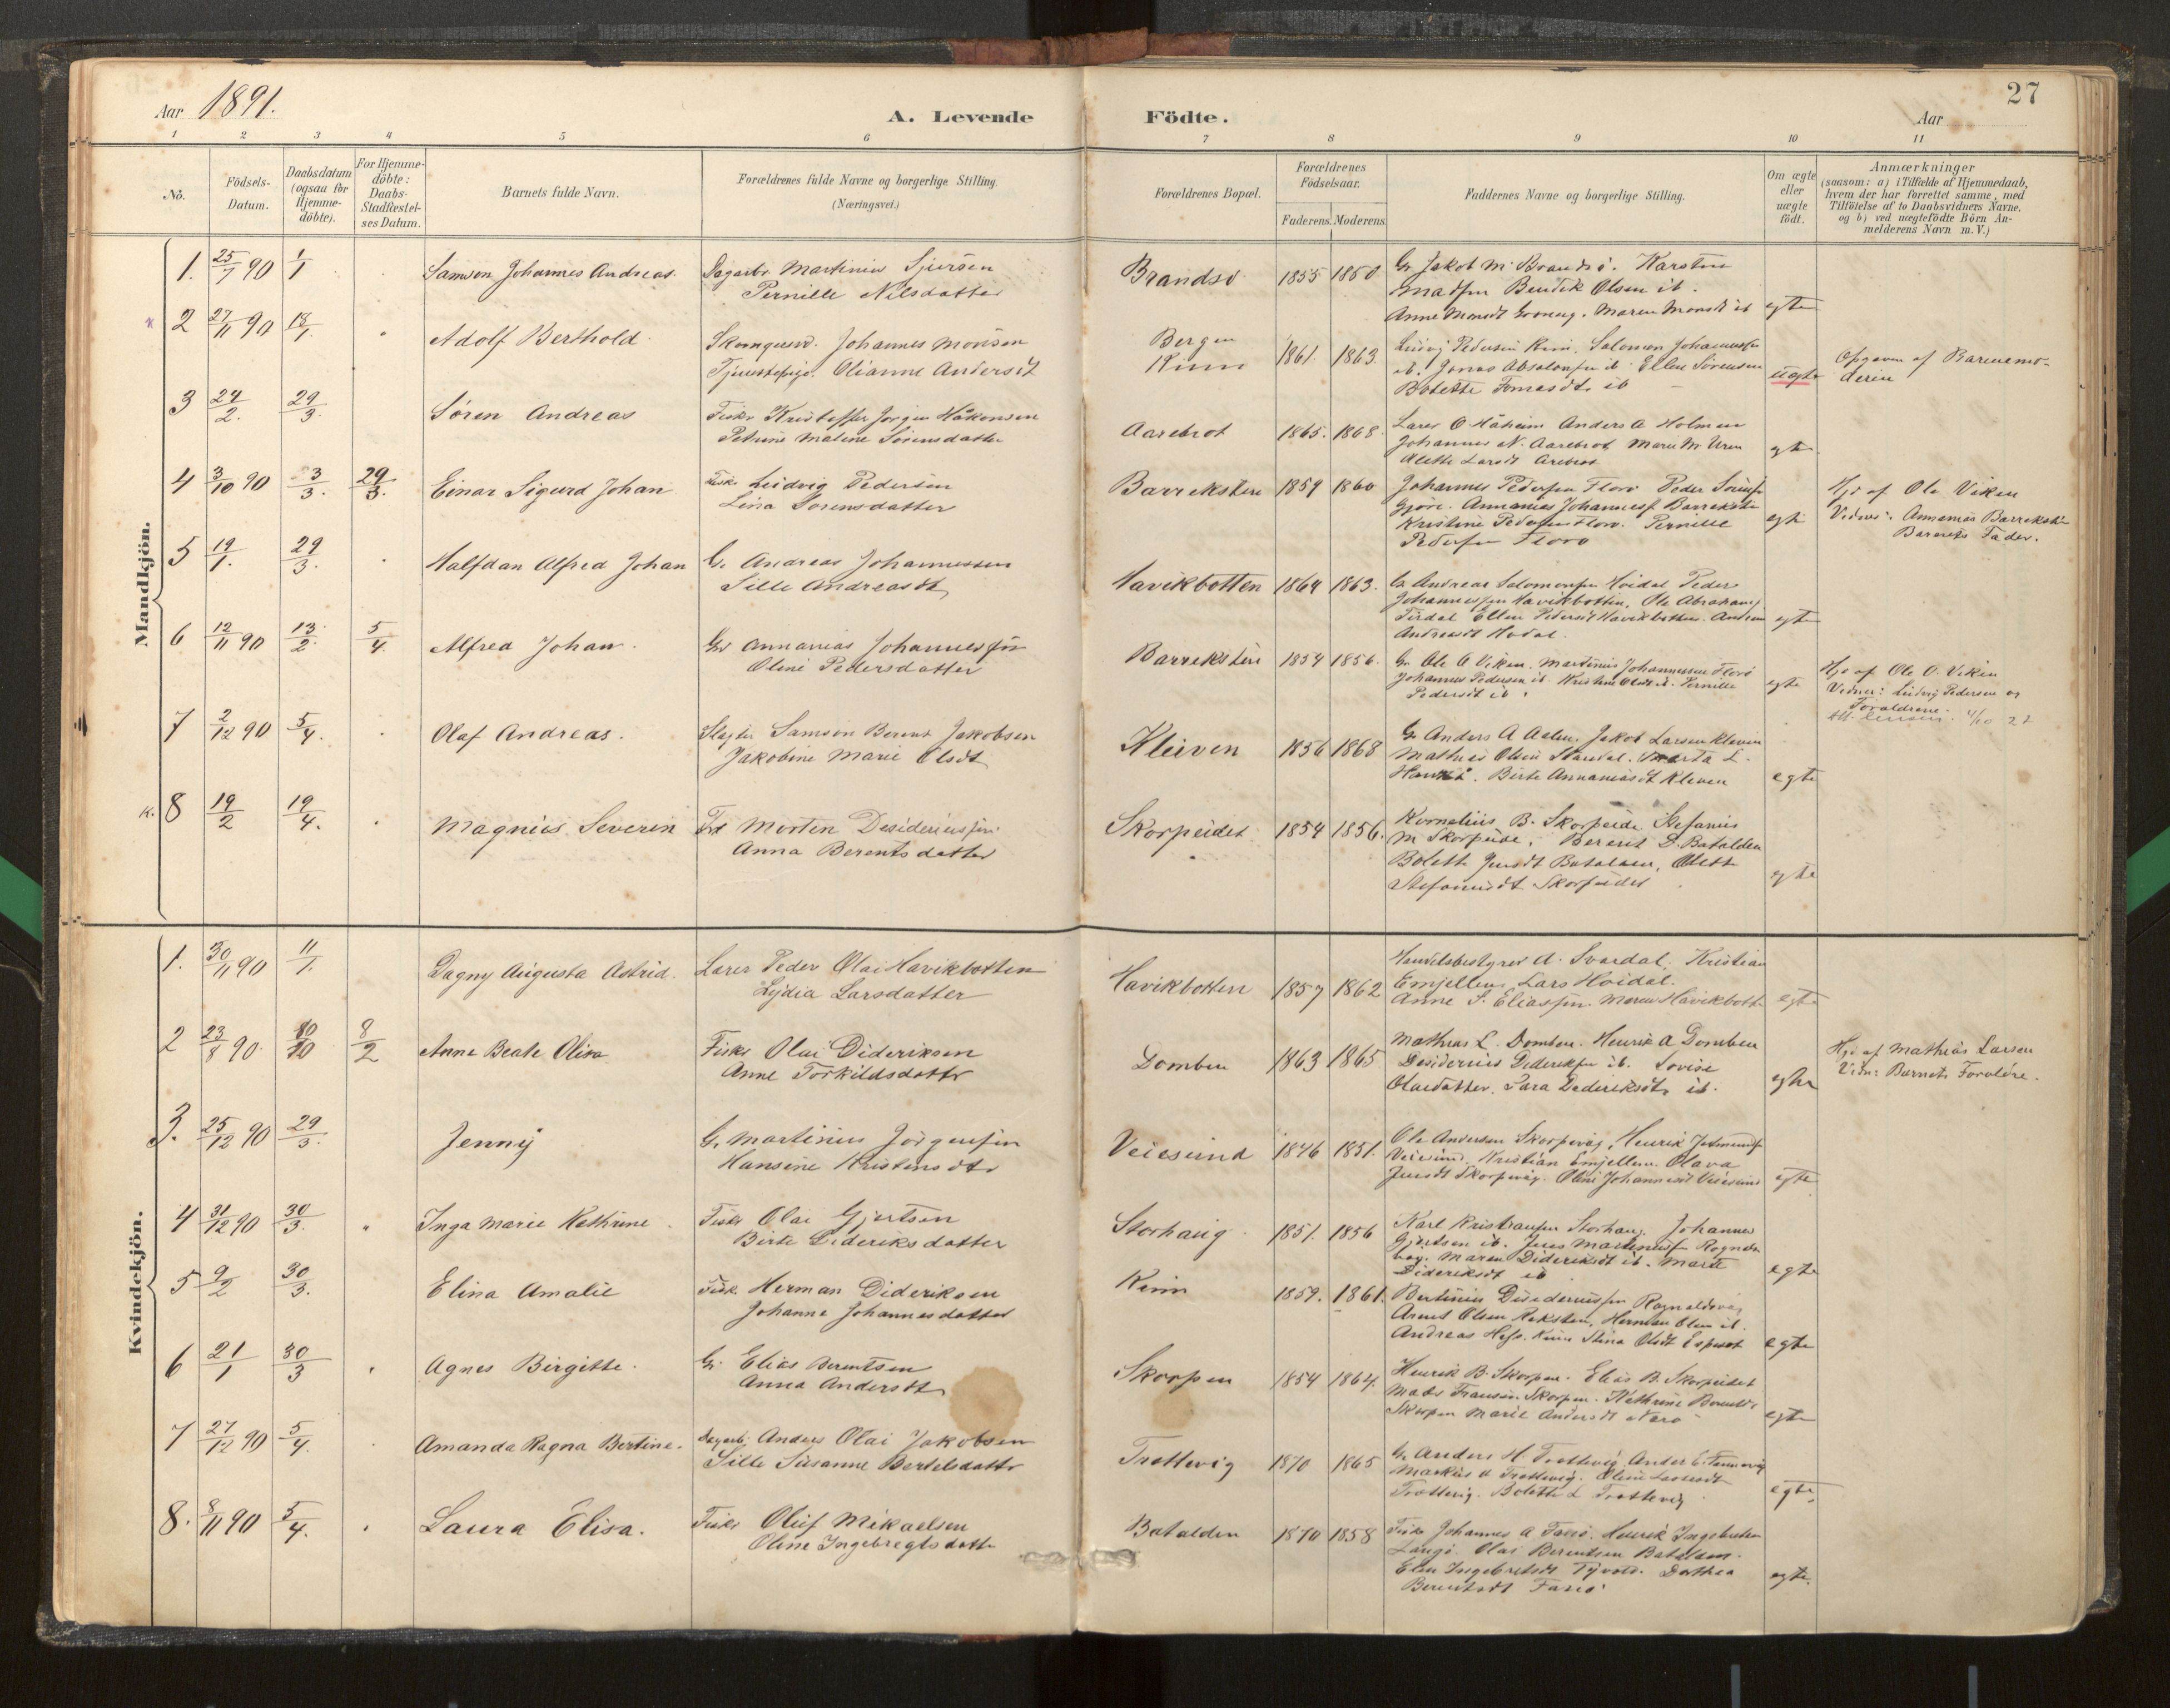 27
Aar 1891.
A. Levende Födte.
Aar
1 2 3 4 5 6 7 8 9 10 11
No.
Födsels-
Datum.
Daabsdatum
(ogsaa for
Hjemme-
döbte).
For Hjemme-
döbte:
Daabs-
Stadfæstel-
ses Datum.
Barnets fulde Navn.
Forældrenes fulde Navne og borgerlige Stilling.
(Næringsvei.)
Forældrenes Bopæl.
Forældrenes
Födselsaar.
Faderens. Moderens.
Faddernes Navne og borgerlige Stilling.
Om ægte
eller
uægte
födt.
Anmærkninger
(saasom: a) i Tilfælde af Hjemmedaab,
hvem der har forrettet samme, med
Tilföielse af to Daabsvidners Navne.
og b) ved uægtefödte Börn An-
melderens Navn m. V.)
Mandkjön.
1. 25/7 90 1/1 Samson Johannes Andreas. Dagarbr. Martinius Sjursen
Pernille Nilsdatter
Brandsö 1855 1850 Gr Jakob M. Brandsö. Karsten
Madsen Bendik Olsen ib.
egte
2 27/11 90 18/1 Adolf Berthold
Johannes Monsen
Tjenestepige. Olianne Andersdt
Bergen
Kinn
1861. 1863
Ludvig Pedersen Kinn. Salomon Johannessen
ib. Jonas Absalonsen ib. Ellen Sörensen
Bolette Tomasdt. ib
uegte
Opgaven af Barnemo-
deren
3 24/2. 29/3. Sören Andreas Fisker Kristoffer Jörgen Håkonsen
Petrine Maline Sörensdatter
Aarebrot 1865. 1868. Lars O. Håheim Anders A Holmen
Johannes N. Aarebrot Marie M. Uren
Alette Larsdt Arebrot
egte
4 3/10 90 3/3. 29/3. Einar Sigurd Johan Fisker Ludvig Pedersen
Lina Sorensdatter
Barrekstein 1859 1860 Johannes Pedersen Floro Peder
Annanias Johannessen Barrekstein
Kristine Pedersen Floro. Pernille
Pedersen Floro
egte
Hjd af Ole Viken
Vidner: Annanias Barrekstein
Barnets Fader.
5 19/1. 29/3. Halfdan Alfred Johan G. Andreas Johannessen
Sille Andreasdt
Havikbotten 1864 1863. G. Andreas Salomonsen Hoidal Peder
Johannessen Havikbotten, Ole Abrahams
Ellen Pedersdt Havikbotten.
Andreasdt Hodal.
egte
6 12/11 90 13/2. 5/4. Alfred Johan. Gr Annanias Johannessen
Oline Pedersdatter
Barrekstein 1854 1856. Gr. Ole O Viken. Martinus Johannessen Florö
Johannes Pedersen ib. Kristine Olsdt ib. Pernille
Pedersdt ib.
egte
Hjd af Ole O. Viken
Vidner: Ludvig Pedersen og
Forældrene.
7 2/12 90 5/4. Olaf Andreas. Samson Berent Jakobsen
Jakobine Marie Olsdt
Kleiven 1856 1868 G. Anders A Aslen. Jakob Larsen Kleiven
Mathias Olsen Standal. Marta L.
Birte Annaniasdt Kleven
egte
K. 8 19/2 19/4. Magnius Severin Morten Desideriussen
Anna Berentsdatter
Skorpeidet 1854 1856. Kornelius B. Skorpeide Stefanus
M Skorpeide. Berent D. Batalden
Bolette Jensdt Batalden, Olette
Stefanusdt Skorpeidet
egte
Kvindekjön.
1. 30/11 90 11/1. Dagny Augusta Astrid. Lærer Peder Olai Havikbotten
Lydia Larsdatter
Havikbotten 1857 1862 Handelsbestyrer A. Svardal, Kristian
Emjellen, Lars Hoidal.
Anne S. Eliassen. Maren Havikbotten
egte
2 23/8 90. 10/10 8/2 Anne Beate Olisa Fisker Olai Dideriksen
Anne Torkildsdatter
Domben 1863 1865 Mathias L. Domben. Henrik A Domben
Desiderius Dideriksen ib. Lovise
Olaidatter. Sara Dederiksdt. ib.
egte
Hjd af Mathias Larsen
Vidn: Barnets Forældre.
3. 25/12 90 29/3. Jenny G. Martinus Jörgensen
Hansine Kristensdtr
Veiesund 1846 1851. Ole Andersen Skorpevåg, Henrik
Veiesund. Kristian Emjellen. Olava
Jensdt Skorpevåg. Oline Johannesdt Veiesund
egte
4 31/12 90 30/3. " Inga Marie Kathrine. Fisker Olai Gjertsen
Birte Dideriksdatter
Storhaug 1851. 1856 Karl Kristiansen Storhaug. Johannes
Gjertsen ib. Jens Martinussen
Maren Dideriksdt ib. Marte
Dideriksdt ib
egte
5 9/2 30/3. Elina Amalie Fisk. Herman Dideriksen
Johanne Johannesdatter
Kinn 1859. 1861. Bertinius Desideriussen Rognaldsvåg
Arent Olsen Reksten, Herman Olsen ib.
Andreas Kinn Stina Olsdt
egte
6 21/1 30/3 Agnes Birgitte. Gr. Elias Berentsen
Anna Andersdt
Skorpen 1854 1864. Henrik B. Skorpen. Elias B. Skorpeidet
Mads Fransen Skorpen. Kathrine Berentsdt
Skorpen Marie Andersdt
egte
7 27/12 90 5/4. Amanda Ragna Bertine. Dagarb. Anders Olai Jakobsen
Sille Susanne Bertelsdatter
Trottevig 1870 1865 G. Anders H. Trottevig Anders
Markus A Trottevig.
Trottevig. Bolette L Trottevig
egte,
8. 8/11 90 5/4. Laura Elisa. Fisker Oluf Mikaelsen
Oline Ingebregtsdatter
Batalden 1870 1858 Fisker Johannes A Farö. Henrik Ingebretsen
Olai Berentsen Batalden.
Elen Ingebretsdt Dorthea
Berentsdt Farö
egte.